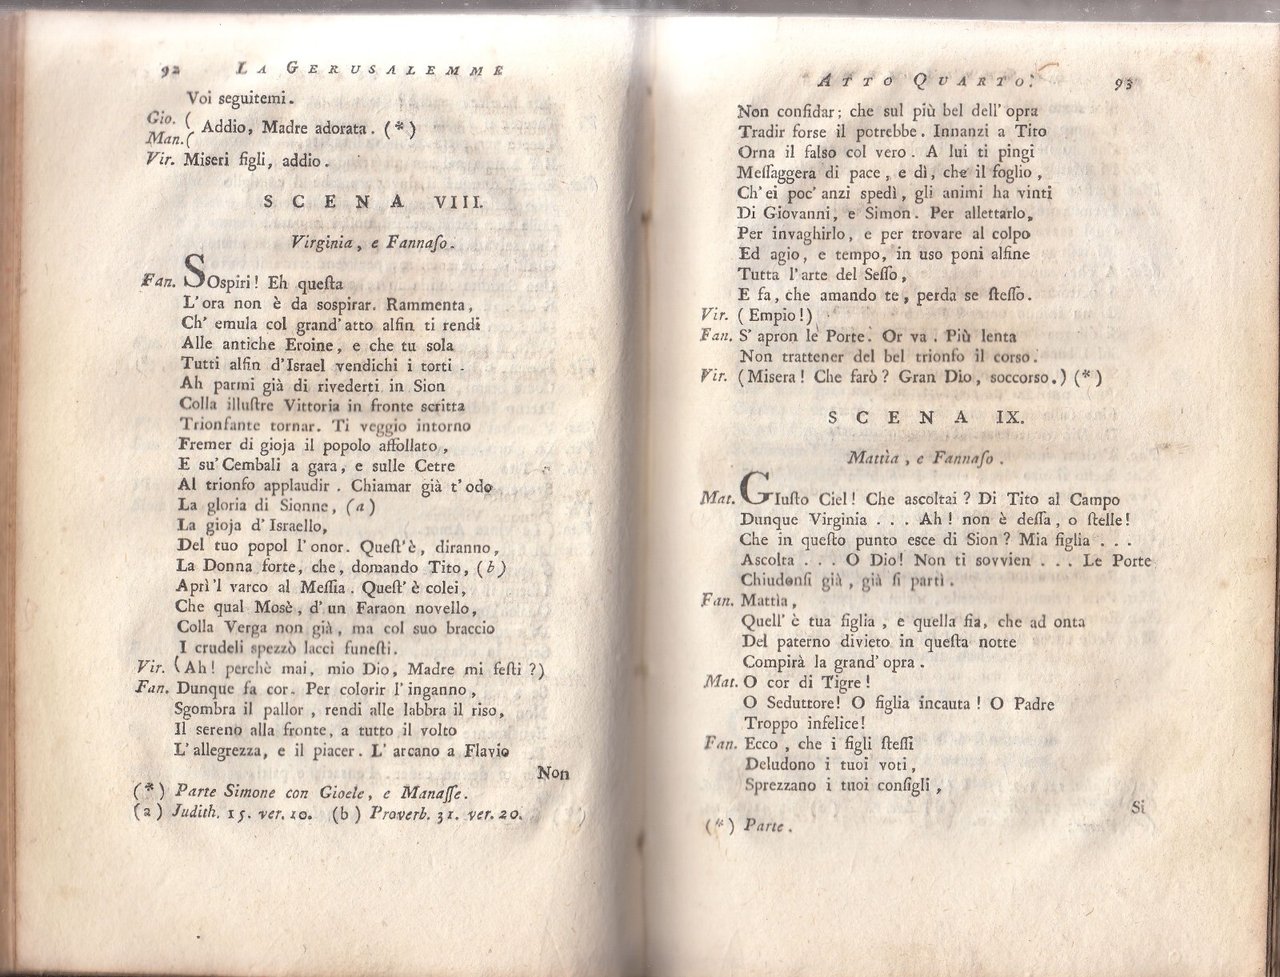 92 LA GERUSALEMME
Voi seguitemi.
Gio. (
Man.( Addio, Madre adorata. (*)
Vir. Miseri figli, addio.
SCENA VIII.
Virginia, e Fannaſo.
Fan. SOspiri! Eh queſta
L'ora non è da sospirar. Rammenta,
Ch' emula col grand'atto alfin ti rendi
Alle antiche Eroine, e che tu sola
Tutti alfin d'Israel vendichi i torti.
Ah parmi già di rivederti in Sion
Colla illuſtre Vittoria in fronte scritta
Trionfante tornar. Ti veggio intorno
Fremer di gioja il popolo affollato,
E su' Cembali a gara, e sulle Cetre
Al trionfo applaudir. Chiamar già t'odo
La gloria di Sionne, (a)
La gioja d'Israello,
Del tuo popol l'onor. Queſt'è, diranno,
La Donna forte, che, domando Tito, (b)
Aprì'l varco al Meſſia. Queſt'è colei,
Che qual Mosè, d'un Faraon novello,
Colla Verga non già, ma col suo braccio
I crudeli spezzò lacci funeſti.
Vir. (Ah! perchè mai, mio Dio, Madre mi feſti?)
Fan. Dunque fa cor. Per colorir l'inganno,
Sgombra il pallor, rendi alle labbra il riso,
Il sereno alla fronte, a tutto il volto
L'allegrezza, e il piacer. L'arcano a Flavio
Non
(*) Parte Simone con Gioele, e Manaſſe.
(a) Judith. 15. ver. 10. (b) Proverb. 31. ver. 20.
ATTO QUARTO. 93
Non confidar; che sul più bel dell'opra
Tradir forse il potrebbe. Innanzi a Tito
Orna il falso col vero. A lui ti pingi
Meſſaggera di pace, e dì, che il foglio,
Ch'ei poc'anzi spedì, gli animi ha vinti
Di Giovanni, e Simon. Per allettarlo,
Per invaghirlo, e per trovare al colpo
Ed agio, e tempo, in uso poni alfine
Tutta l'arte del Seſſo,
E fa, che amando te, perda se ſteſſo.
Vir. (Empio!)
Fan. S'apron le Porte. Or va. Più lenta
Non trattener del bel trionfo il corso.
Vir. (Misera! Che farò? Gran Dio, soccorso.) (*)
SCENA IX.
Mattìa, e Fannaſo.
Mat. GIuſto Ciel! Che ascoltai? Di Tito al Campo
Dunque Virginia . . . Ah! non è deſſa, o ſtelle!
Che in queſto punto esce di Sion? Mia figlia . . .
Ascolta . . . O Dio! Non ti sovvien . . . Le Porte
Chiudonſi già, già ſi partì.
Fan. Mattìa,
Quell'è tua figlia, e quella ſia, che ad onta
Del paterno divieto in queſta notte
Compirà la grand'opra.
Mat. O cor di Tigre!
O Seduttore! O figlia incauta! O Padre
Troppo infelice!
Fan. Ecco, che i figli ſteſſi
Deludono i tuoi voti,
Sprezzano i tuoi configli,
Si
(*) Parte.